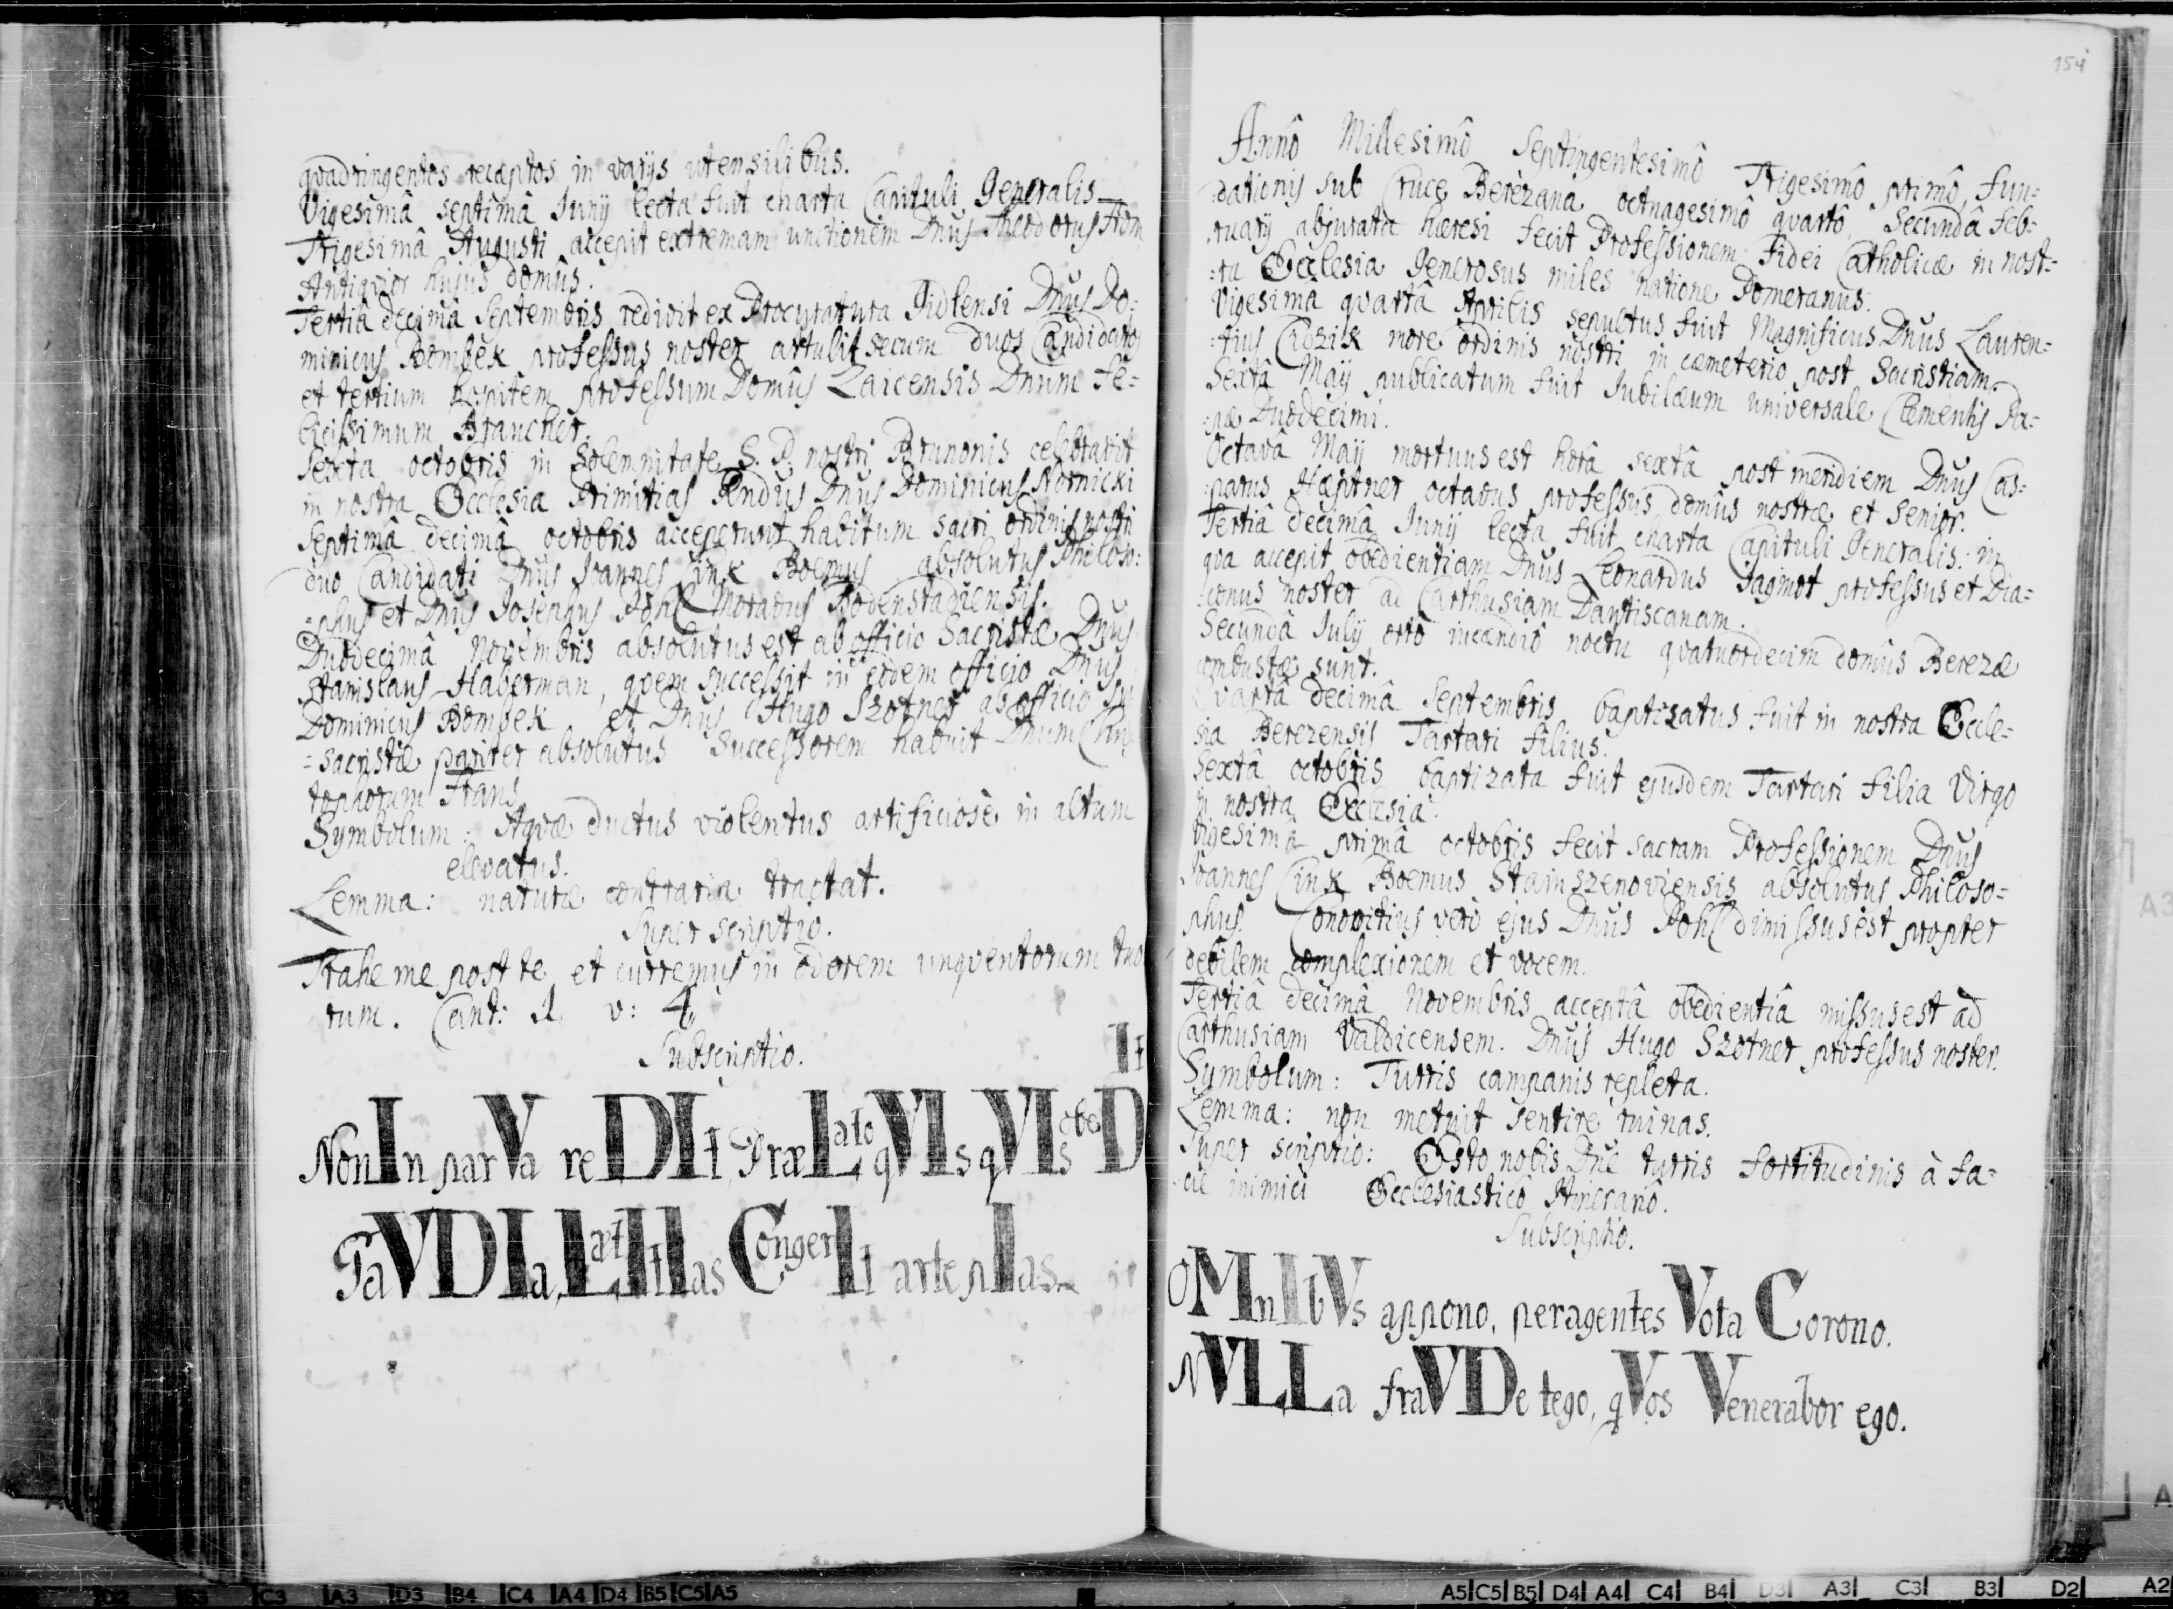 quadringentos receptos in varijs utensilibus.
Vigesimâ septimâ Junij lecta fuit charta Capituli Generalis
Trigesimâ Augusti accepit extremam unctionem Dnus Theodorus
Antiquior hujus domûs.
Tertia decimâ Septembris redivit ex Procuratura Gidlensi Dnus Do:
minicus Bombek professus noster attulit secum duos Candidatos
et tertium hospitem professum Domûs Laicensis Dnum Fe=
licissimum Braucher.
Sexta octobris in Solemnitate S. P. nostri Brunonis celebravit
in nostra Ecclesia Primitias Rndus Dnus Dominicus Nornicki
Septimâ decimâ octobris acceperunt habitum sacri ordinis nostri
duo Candidati Dnus Joannes Cink Boemus absolutus Philoso:
=phus et Dnus Josephus Pohl Moravus Bodenstadiensis.
Duodecimâ Novembris absolutus est ab officio Sacristæ Dnus
Stanislaus Haberman, quem successit in eodem officio Dnus
Dominicus Bombek. et Dnus Hugo Szotner ab officio
=sacristæ pariter absolutus Successorem habuit Dnum
tophorum Frans
Symbolum: Aquæ ductus violentus artificiosè in altum
elevatus.
Lemma: naturæ contraria tractat.
Super scriptio.
Trahe me post te et curremus in odorem unquentorum tuo
rum. Cant: 1 v: 4.
Subscriptio.
NonIn parVa reDIt PræLato qVIs qVIs obeD
GaVDIa LætItIas CongerIt arte pIas
154
Annô Millesimô Septingentesimô Trigesimô primô, fun=
dationis sub Cruce Berèzana octuagesimô quartô. Secundâ Feb=
ruarij abjurata hæresi fecit Professionem Fidei Catholicæ in nost=
=ra Ecclesia Generosus miles natione Pomeranus.
Vigesimâ quartâ Aprilis sepultus fuit Magnificus Dnus Lauren=
=tius Cidzik more ordinis nostri in cæmeterio post Sacristiam.
Sextâ Maij publicatum fuit Jubilæum universale Clementis Pa=
=pæ Duodecimi.
Octavâ Maij mortuus est horâ sextâ post meridiem Dnus Cas=
=parus Hæptner octavus professus domûs nostræ et Senior.
Tertiâ decimâ Junij lecta fuit charta Capituli Generalis: in
qua accepit obedientiam Dnus Leonardus Jagmot professus et Dia=
=conus noster ad Carthusiam Dantiscanam.
Secundâ Julij ortô incendiô noctu quatuordecim domûs Berezæ
combustæ sunt.
Quartâ decimâ Septembris baptisatus fuit in nostra Eccle=
sia Berezensis Tartari filius.
Sextâ octobris baptizata fuit ejusdem Tartari filia Virgo
in nostra Ecclesia.
Vigesimâ primâ octobris fecit sacram Professionem Dnus
Joannes Cink Boemus Stainszenoviensis absolutus Philoso=
phus. Conovitius verò ejus Dnus Pohl dimissus est propter
debilem complexionem et vocem.
Tertiâ decimâ Novembris acceptâ obedientiâ missus est ad
Carthusiam Valdicensem. Dnus Hugo Szotner professus noster.
Symbolum: Turris campanis repleta.
Lemma: non metuit sentire ruinas.
Super scriptio: Esto nobis Dne turris fortitudinis à fa=
cie inimici Ecclesiasticô Itinerariô.
Subscriptio.
OMnIbVs appono, peragentes Vota Corono.
NVLLa fraVDe tego, qVos Venerabor ego.
D2 B3 C3 A3 D3 B4 C4 A4 D4 B5 C5 A5
A5 C5 B5 D4 A4 C4 B4 D3 A3 C3 B3 D2 A2